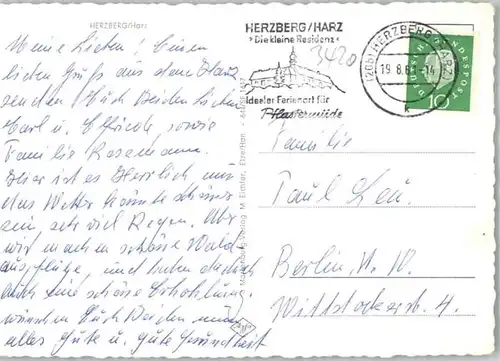 HERZBERG/Harz
Meine Lieben! Einen
lieben Gruß aus dem Harz
senden Euch Beiden lieben
Karl u. Elfriede, sowie
Familie
Hier ist es Herrlich nur
das Wetter könnte schöner
sein, sehr viel Regen. Aber
wir machen schöne Wald
ausflüge, und haben dadurch
auch eine schöne Erholung.
wünschen Euch Beiden nur
alles Gute u. gute Gesundheit
HERZBERG/HARZ
"Die kleine Residenz"
3420
Idealer Ferienort für
Pflastermüde
(20b) HERZBERG (HARZ)
19.8.61-14
k
DEUTSCHE BUNDESPOST
10
Familie
Paul Leu.
Berlin N. W.
Wittstockerstr. 4.